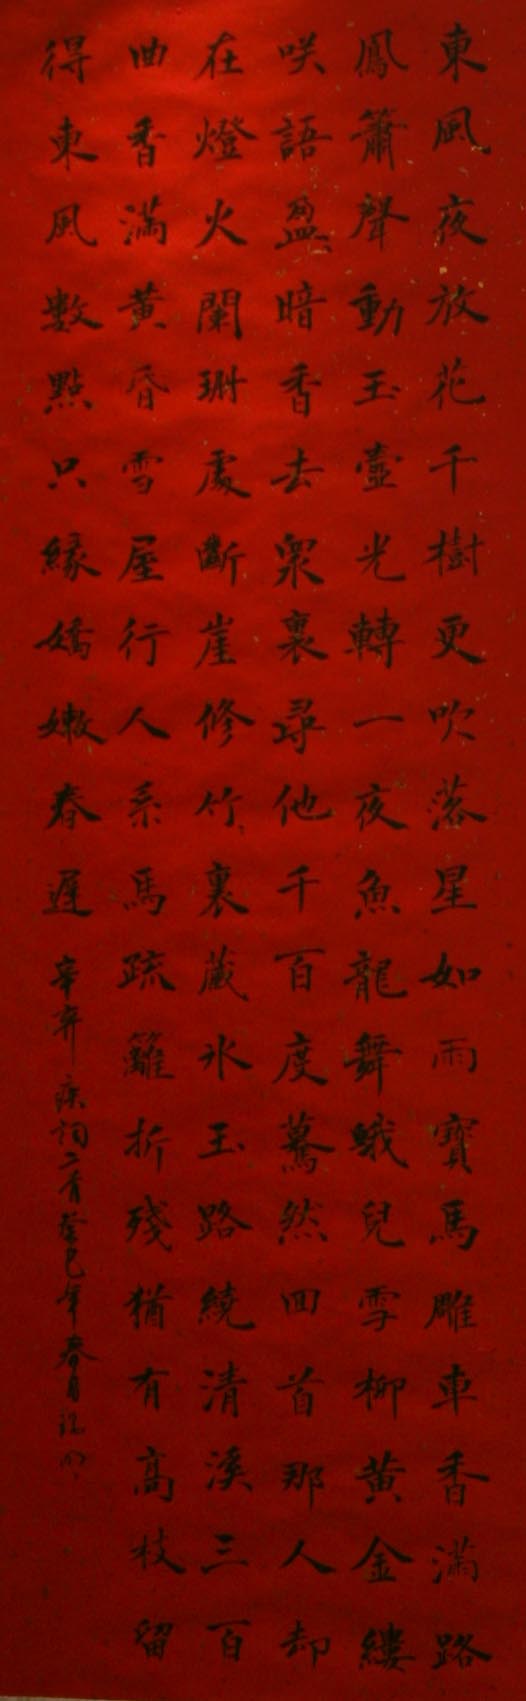 東風夜放花千樹更吹落星如雨寶馬雕車香滿路
鳳簫聲動玉壺光轉一夜魚龍舞蛾兒雪柳黄金縷
咲語盈暗香去衆裏尋他千百度驀然回首那人却
在燈火闌珊處斷崖修竹裏藏冰玉路繞清溪三百
曲香滿黄昏雪屋行人系馬疏籬折殘猶有高枝留
得東風數點只緣嬌嫩春遲
辛弃疾詞二首癸巳年春月